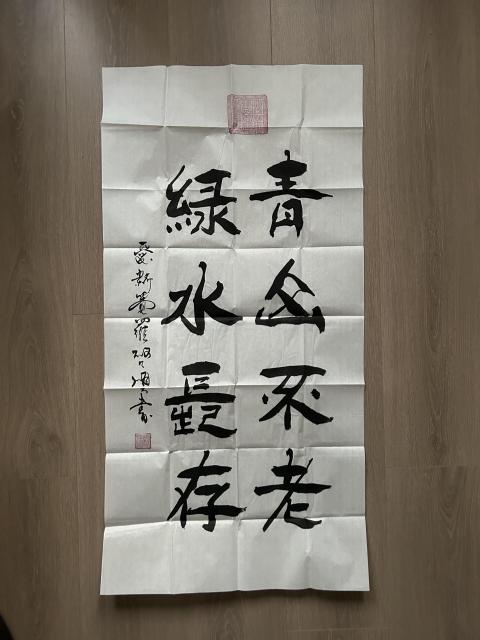 青山不老
緑水長存
愛新覺羅 書